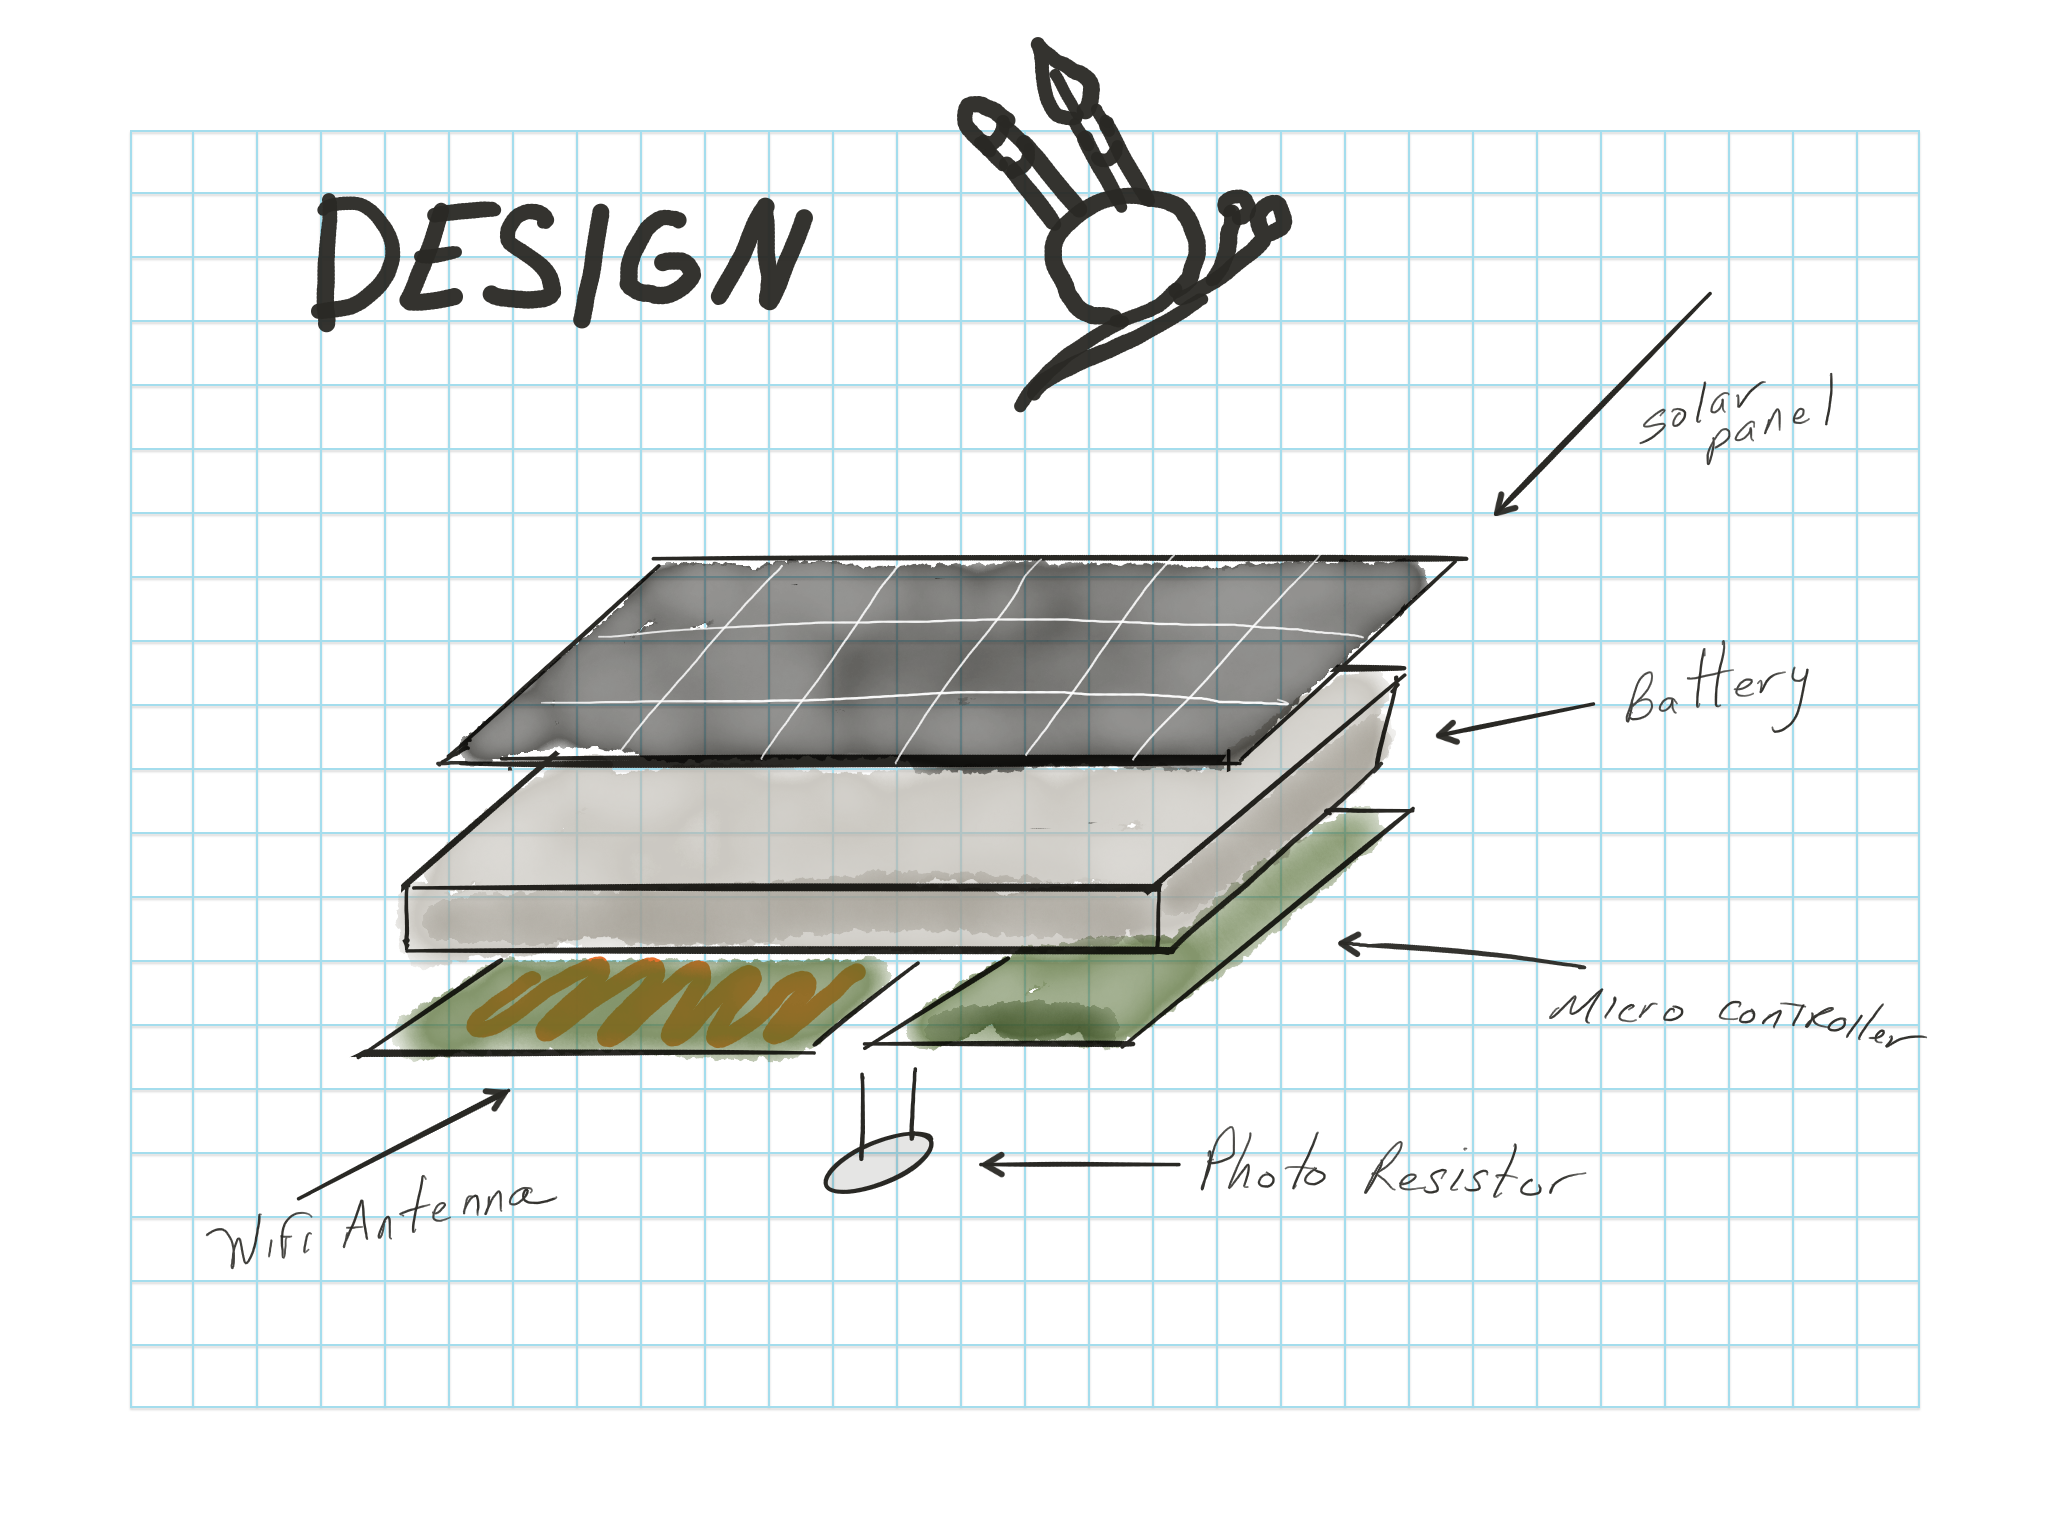 DESIGN
solar
panel
Battery
Micro controller
Photo Resistor
WiFi Antenna